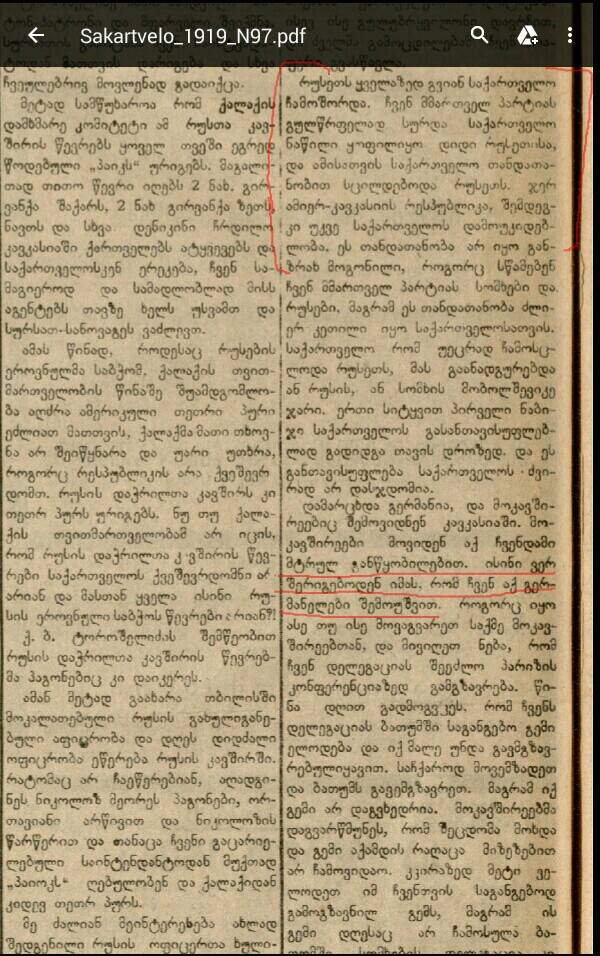 Sakartvelo_1919_N97.pdf
ჩვეულებრივ მოვლენად გადაიქცა.
მეტად სამწუხაროა რომ ქალაქის
დამხმარე კომიტეტი ამ რუსთა კავ-
შირის წევრებს ყოველ თვეში ეგრედ
წოდებული „პაიკს“ ურიგებს. მაგალი-
თად თითო წევრი იღებს 2 ნახ. გირ-
ვანქა შაქარს, 2 ნახ გირვანქა ზეთს,
ნავთს და სხვა დენიკინი ჩრდილო
კავკასიაში ქართველებს ატყვევებს და
საქართველოსკენ ერეკება, ჩვენ სა-
მაგიეროდ და სამადლობლად მისს
აგენტებს თავზე ხელს უსვამთ და
სურსათ-სანოვაგეს ვაძლევთ.
ამას წინად, როდესაც რუსების
ეროვნულმა საბჭომ, ქალაქის თვით-
მართველობის წინაშე შუამდგომლო-
ბა აღძრა ამერიკული თეთრი პური
ეძლიათ მათთვის, ქალაქმა მათი თხოვ-
ნა არ შეიწყნარა და უარი უთხრა,
როგორც რესპუბლიკის არა ქვეშევრ
დომთ. რუსის დაჭრილთა კავშირს კი
თეთრ პურს ურიგებს. ნუ თუ ქალა-
ქის თვითმართველობამ არ იცის,
რომ რუსის დაჭრილთა კავშირის წევ-
რები საქართველოს ქვეშევრდომნი არ
არიან და მასთან ყველა ისინი რუ-
სის ეროვნული საბჭოს წევრები არიან?!
ქ. ბ. ტოროშელიძის შემწეობით
რუსის დაჭრილთა კავშირის წევრებ-
მა პაგონებიც კი დაიკერეს.
ამან მეტად გაახარა თბილისში
მოკალათებული რუსის გახულიგანე-
ბული აფიცრობა და დღეს დიდძალი
ოფიცრობა ეწერება რუსის კავშირში.
რატომაც არ ჩაეწერებიან, აღადგი-
ნეს ნიკოლოზ მეორეს პაგონები, ორ-
თავიანი არწივით და ნიკოლოზის
წარწერით და თანაც ჩვენი გაცარიე-
ლებული საინტენდანტოდან მუქთად
„პაიოკს“ ღებულობენ და ქალაქიდან
კიდევ თეთრ პურს.
მე ძალიან მეინტერესება ახლად
შედგენილი რუსის ოფიცერთა ხული-
რუსეთს ყველაზედ გვიან საქართველო
ჩამოშორდა. ჩვენ მმართველ პარტიას
გულწრფელად სურდა საქართველო
ნაწილი ყოფილიყო დიდი რუსეთისა,
და ამისათვის საქართველო თანდათა-
ნობით სცილდებოდა რუსეთს. ჯერ
ამიერ-კავკასიის რესპუბლიკა, შემდეგ-
კი უკვე საქართველოს დამოუკიდებ-
ლობა. ეს თანდათანობა არ იყო გან-
ზრახ მოგონილი, როგორც სწამებენ
ჩვენ მმართველ პარტიას სომხები და
რუსები, მაგრამ ეს თანდათანობა ძლი-
ერ კეთილი იყო საქართველოსათვის.
საქართველო რომ უეცრად ჩამოსც-
ლოდა რუსეთს, მას გაანადგურებდა
ან რუსის, ან სომხის მობოლშევიკე
ჯარი. ერთი სიტყვით პირველი ნაბი-
ჯი საქართველოს გასანთავისუფლებ-
ლად გადიდგა თავის დროზედ, და ეს
განთავისუფლება საქართველოს ძვი-
რად არ დასჯდომია.
დამარცხდა გერმანია, და მოკავში-
რეებიც შემოვიდნენ კავკასიაში. მო-
კავშირეები მოვიდენ აქ ჩვენდამი
მტრულ განწყობილებით. ისინი ვერ
შერიგებოდენ იმას, რომ ჩვენ აქ გერ-
მანელები შემოუშვით. როგორც იყო
ასე თუ ისე მოვაგვარეთ საქმე მოკავ-
შირეებთან, და მივიღეთ ნება, რომ
ჩვენ დელეგაციას შეეძლო პარიზის
კონფერენციაზედ გამგზავრება. წი-
ნა დღით გადმოგვცეს, რომ ჩვენს
დელეგაციას ბათუმში საგანგებო გემი
ელოდება და იქ მალე უნდა გავმგზავ-
რებულიყავით. საჩქაროდ მოვემზადეთ
და ბათუმს გავემგზავრეთ. მაგრამ იქ
გემი არ დაგვხედრია. მოკავშირეებმა
დაგვარწმუნეს, რომ შეცდომა მოხდა
და გემი აქამდის რაღაცა მიზეზებით
არ ჩამოვიდაო. კვირაზედ მეტი ვე-
ლოდეთ იმ ჩვენთვის საგანგებოდ
გამოგზავნილ გემს, მაგრამ ის
გემი დღესაც არ ჩამოსულა ბა-